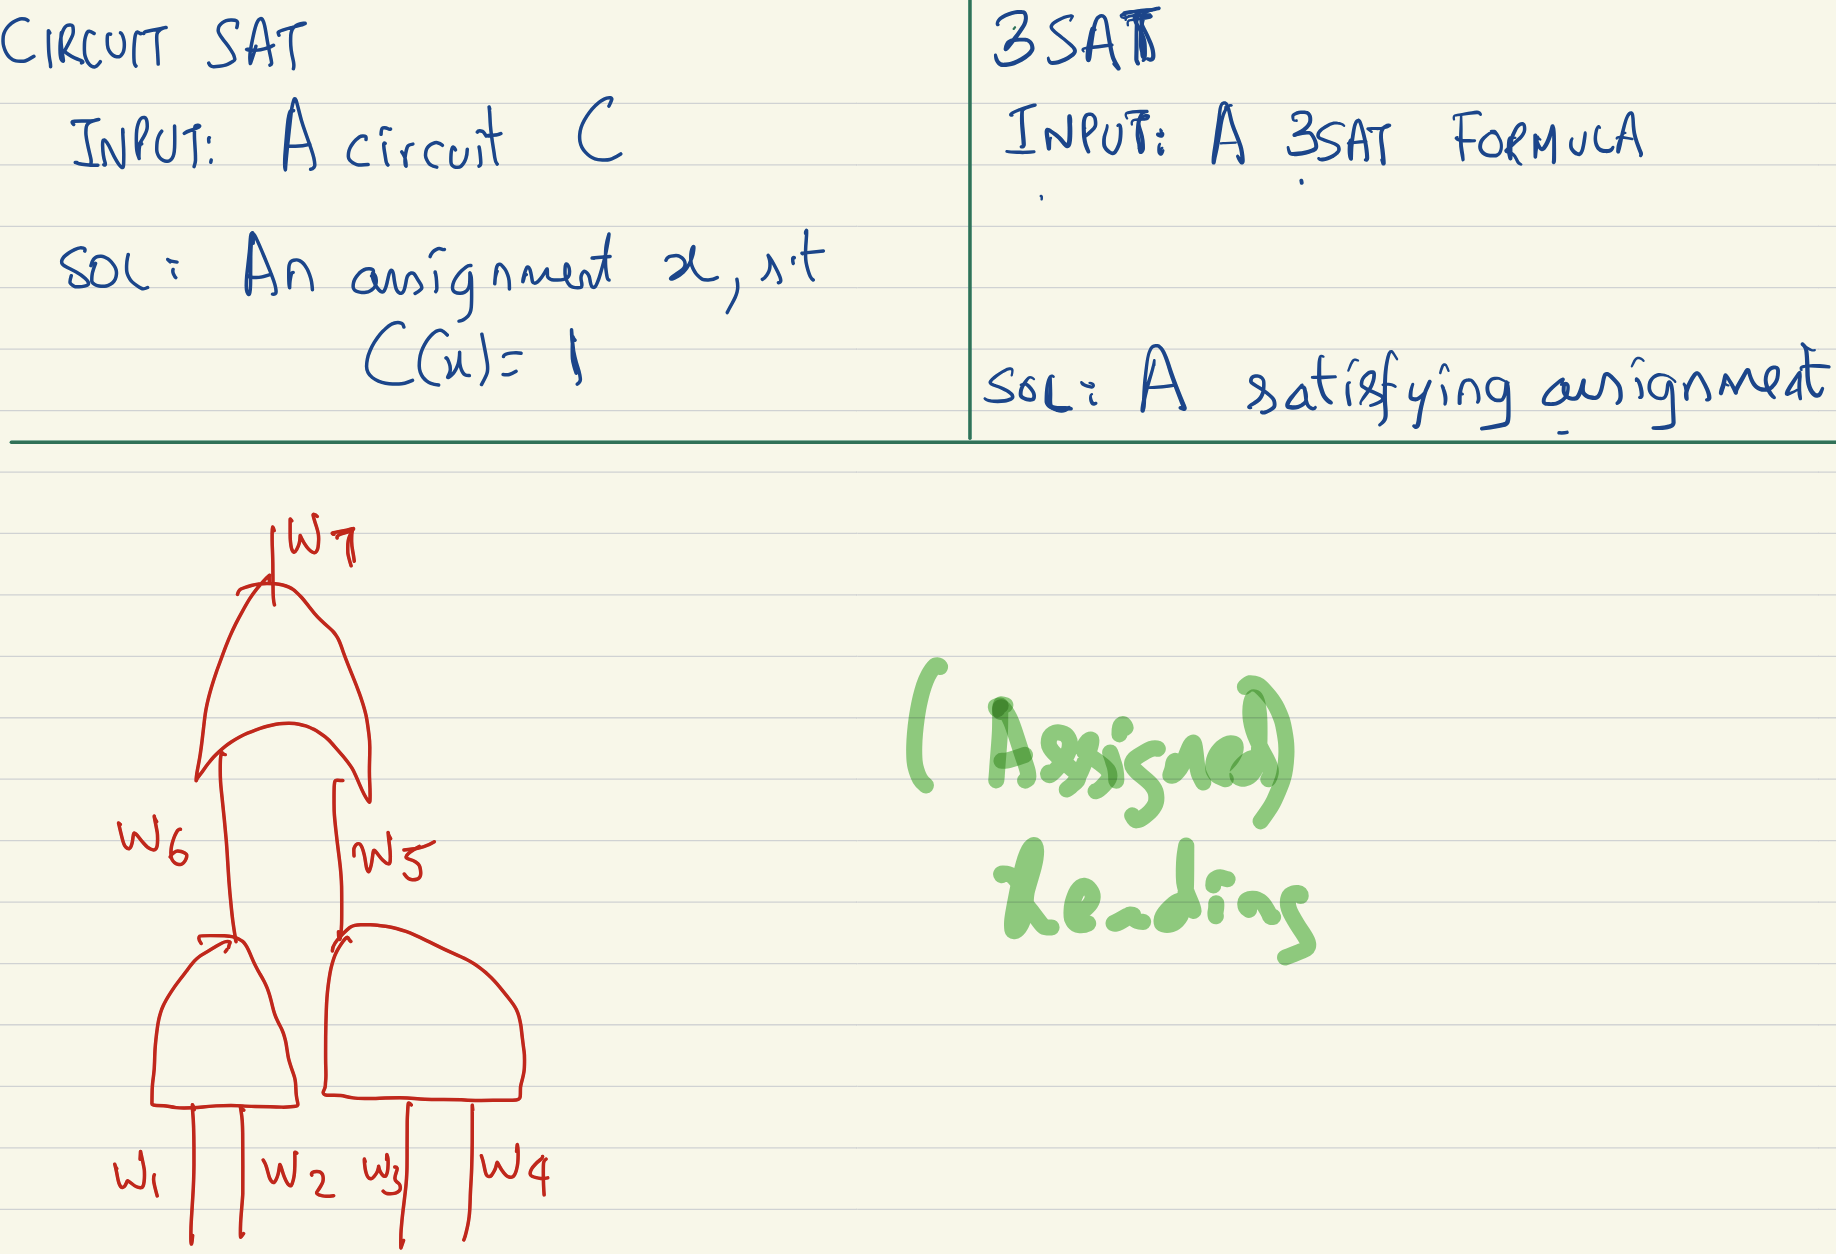 CIRCUIT SAT
INPUT: A circuit C
SOL: An assignment x, s.t
C(x) = 1
3SAT
INPUT: A 3SAT FORMULA
SOL: A satisfying assignment
W7
W6 W5
W1 W2 W3 W4
(Assigned)
Reading